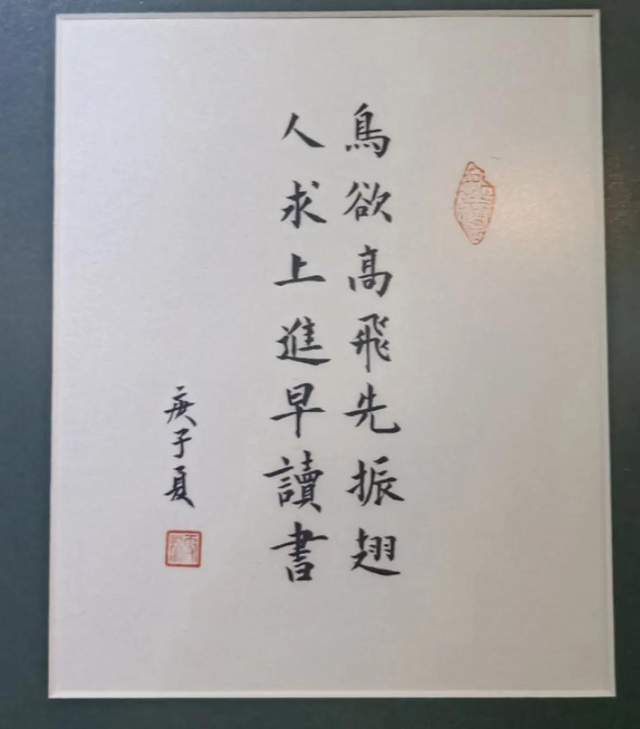 鳥欲高飛先振翅
人求上進早讀書
庚子夏